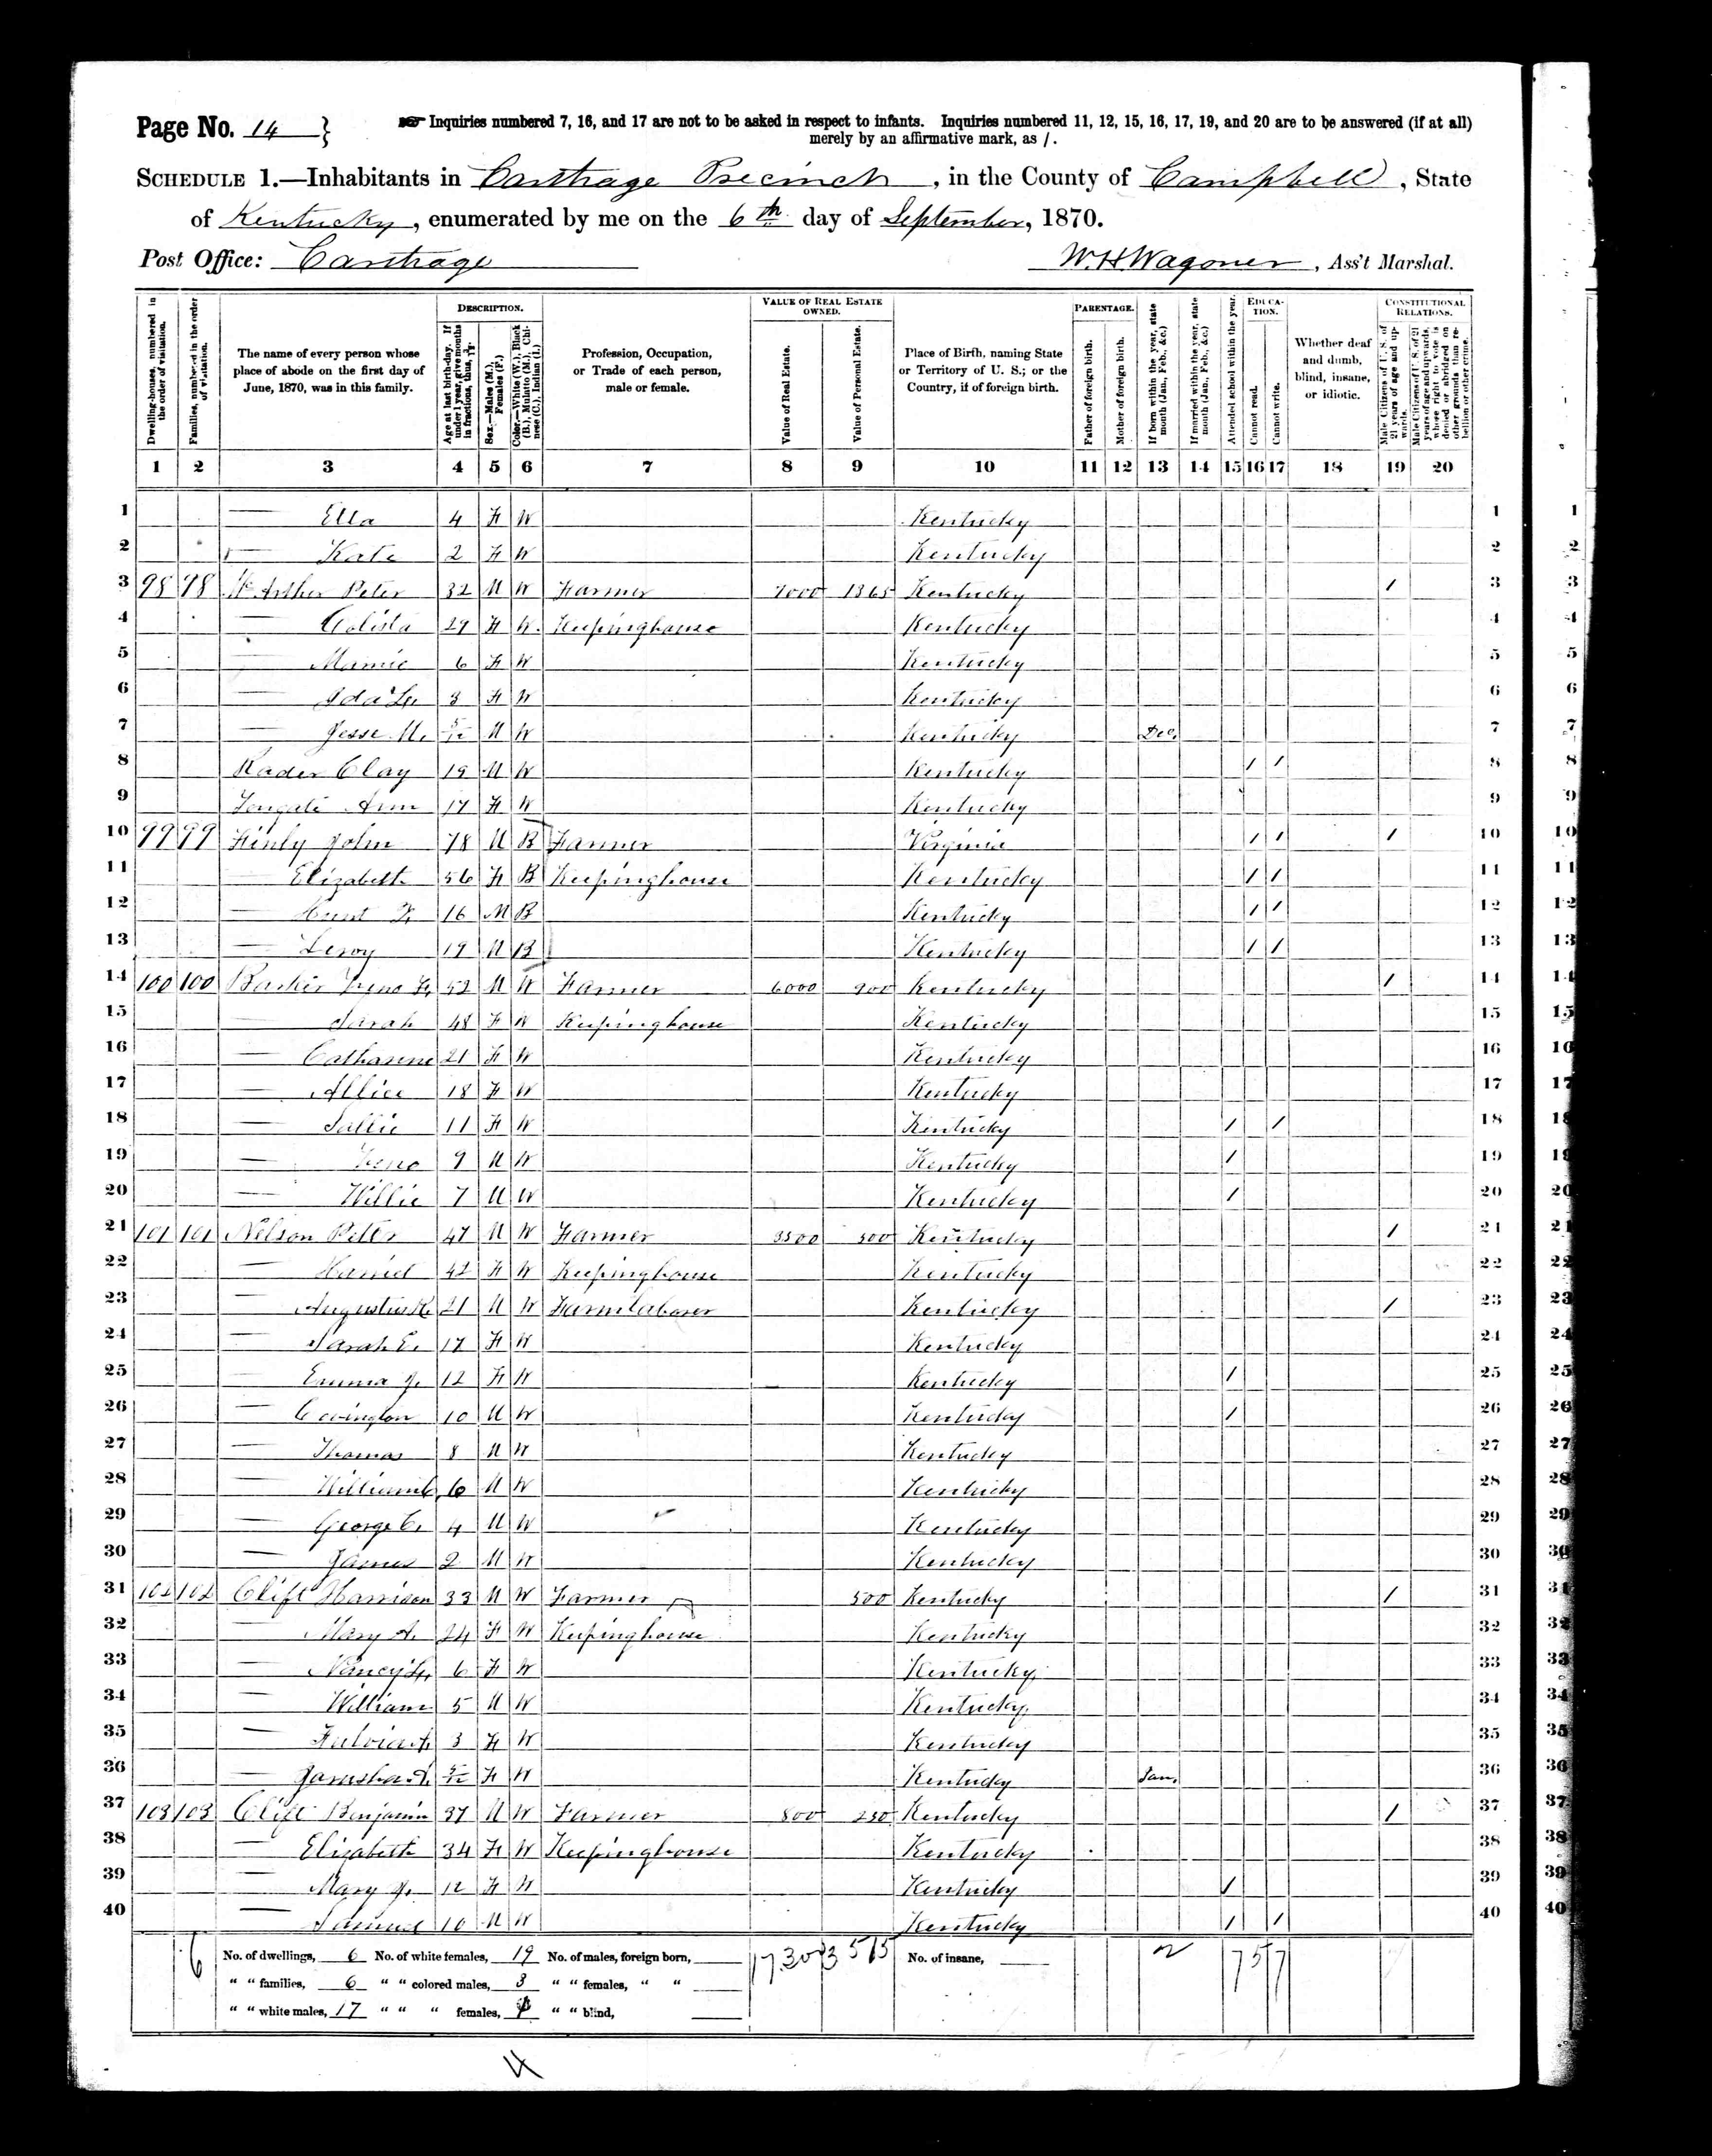 Page No. 14 }
Inquiries numbered 7, 16, and 17 are not to be asked in respect to infants. Inquiries numbered 11, 12, 15, 16, 17, 19, and 20 are to be answered (if at all)
merely by an affirmative mark, as /.
SCHEDULE 1.—Inhabitants in Carthage Precinct, in the County of Campbell, State
of Kentucky, enumerated by me on the 6th day of September, 1870.
Post Office: Carthage
W.H. Wagoner, Ass't Marshal.
Dwelling-houses, numbered in the order of visitation.
Families, numbered in the order of visitation.
The name of every person whose place of abode on the first day of June, 1870, was in this family.
DESCRIPTION.
Age at last birth-day. If under 1 year, give months in fractions, thus, 3/12.
Sex.—Males (M.), Females (F.)
Color.—White (W.), Black (B.), Mulatto (M.), Chinese (C.), Indian (I.)
Profession, Occupation, or Trade of each person, male or female.
VALUE OF REAL ESTATE OWNED.
Value of Real Estate.
Value of Personal Estate.
Place of Birth, naming State or Territory of U. S.; or the Country, if of foreign birth.
PARENTAGE.
Father of foreign birth.
Mother of foreign birth.
If born within the year, state month (Jan., Feb., &c.)
If married within the year, state month (Jan., Feb., &c.)
Attended school within the year.
EDUCATION.
Cannot read.
Cannot write.
Whether deaf and dumb, blind, insane, or idiotic.
CONSTITUTIONAL RELATIONS.
Male Citizens of U. S. of 21 years of age and upwards.
Male Citizens of U. S. of 21 years of age and upwards, whose right to vote is denied or abridged on other grounds than rebellion or other crime.
1 2 3 4 5 6 7 8 9 10 11 12 13 14 15 16 17 18 19 20
1 — Ella 4 F W Kentucky 1
2 — Kate 2 F W Kentucky 2
3 98 98 McArther Peter 32 M W Farmer 7000 1365 Kentucky / 3
4 — Colista 29 F W Keepinghouse Kentucky 4
5 — Mamie 6 F W Kentucky 5
6 — Ida L. 3 F W Kentucky 6
7 — Jesse M. 5/12 M W Kentucky Dec. 7
8 Rader Clay 19 M W Kentucky / / 8
9 Ann 17 F W Kentucky 9
10 99 99 Finly John 78 M B Farmer Virginia / / / 10
11 — Elizabeth 56 F B Keepinghouse Kentucky / / 11
12 — F. 16 M B Kentucky / / 12
13 — Leroy 19 M B Kentucky / / 13
14 100 100 Barker Zeno F. 52 M W Farmer 6000 900 Kentucky / 14
15 — Sarah 48 F W Keepinghouse Kentucky 15
16 — Catharine 21 F W Kentucky 16
17 — Allice 18 F W Kentucky 17
18 — Sallie 11 F W Kentucky / / 18
19 — Zeno 9 M W Kentucky / 19
20 — Willie 7 M W Kentucky / 20
21 101 101 Nelson Peter 47 M W Farmer 3500 500 Kentucky / 21
22 — Harriet 42 F W Keepinghouse Kentucky 22
23 — Augustus R. 21 M W Farmlaborer Kentucky / 23
24 — Sarah E. 17 F W Kentucky 24
25 — Emma J. 12 F W Kentucky / 25
26 — Covington 10 M W Kentucky / 26
27 — Thomas 8 M W Kentucky 27
28 — William C. 6 M W Kentucky 28
29 — George C. 4 M W Kentucky 29
30 — James 2 M W Kentucky 30
31 102 102 Clift Harrison 33 M W Farmer 500 Kentucky / 31
32 — Mary A. 24 F W Keepinghouse Kentucky 32
33 — Nancy L. 6 F W Kentucky 33
34 — William 5 M W Kentucky 34
35 — Fulvia A. 3 F W Kentucky 35
36 — 5/12 F W Kentucky Jan. 36
37 103 103 Clift Benjamin 37 M W Farmer 800 250 Kentucky / 37
38 — Elizabeth 34 F W Keepinghouse Kentucky 38
39 — Mary J. 12 F W Kentucky / 39
40 — Samuel 10 M W Kentucky / / 40
6 No. of dwellings, 6 No. of white females, 19 No. of males, foreign born, 17300 3515 No. of insane, 2 7 5 7
" " families, 6 " " colored males, 3 " " females, " "
" " white males, 17 " " " females, 1 " " blind,
4